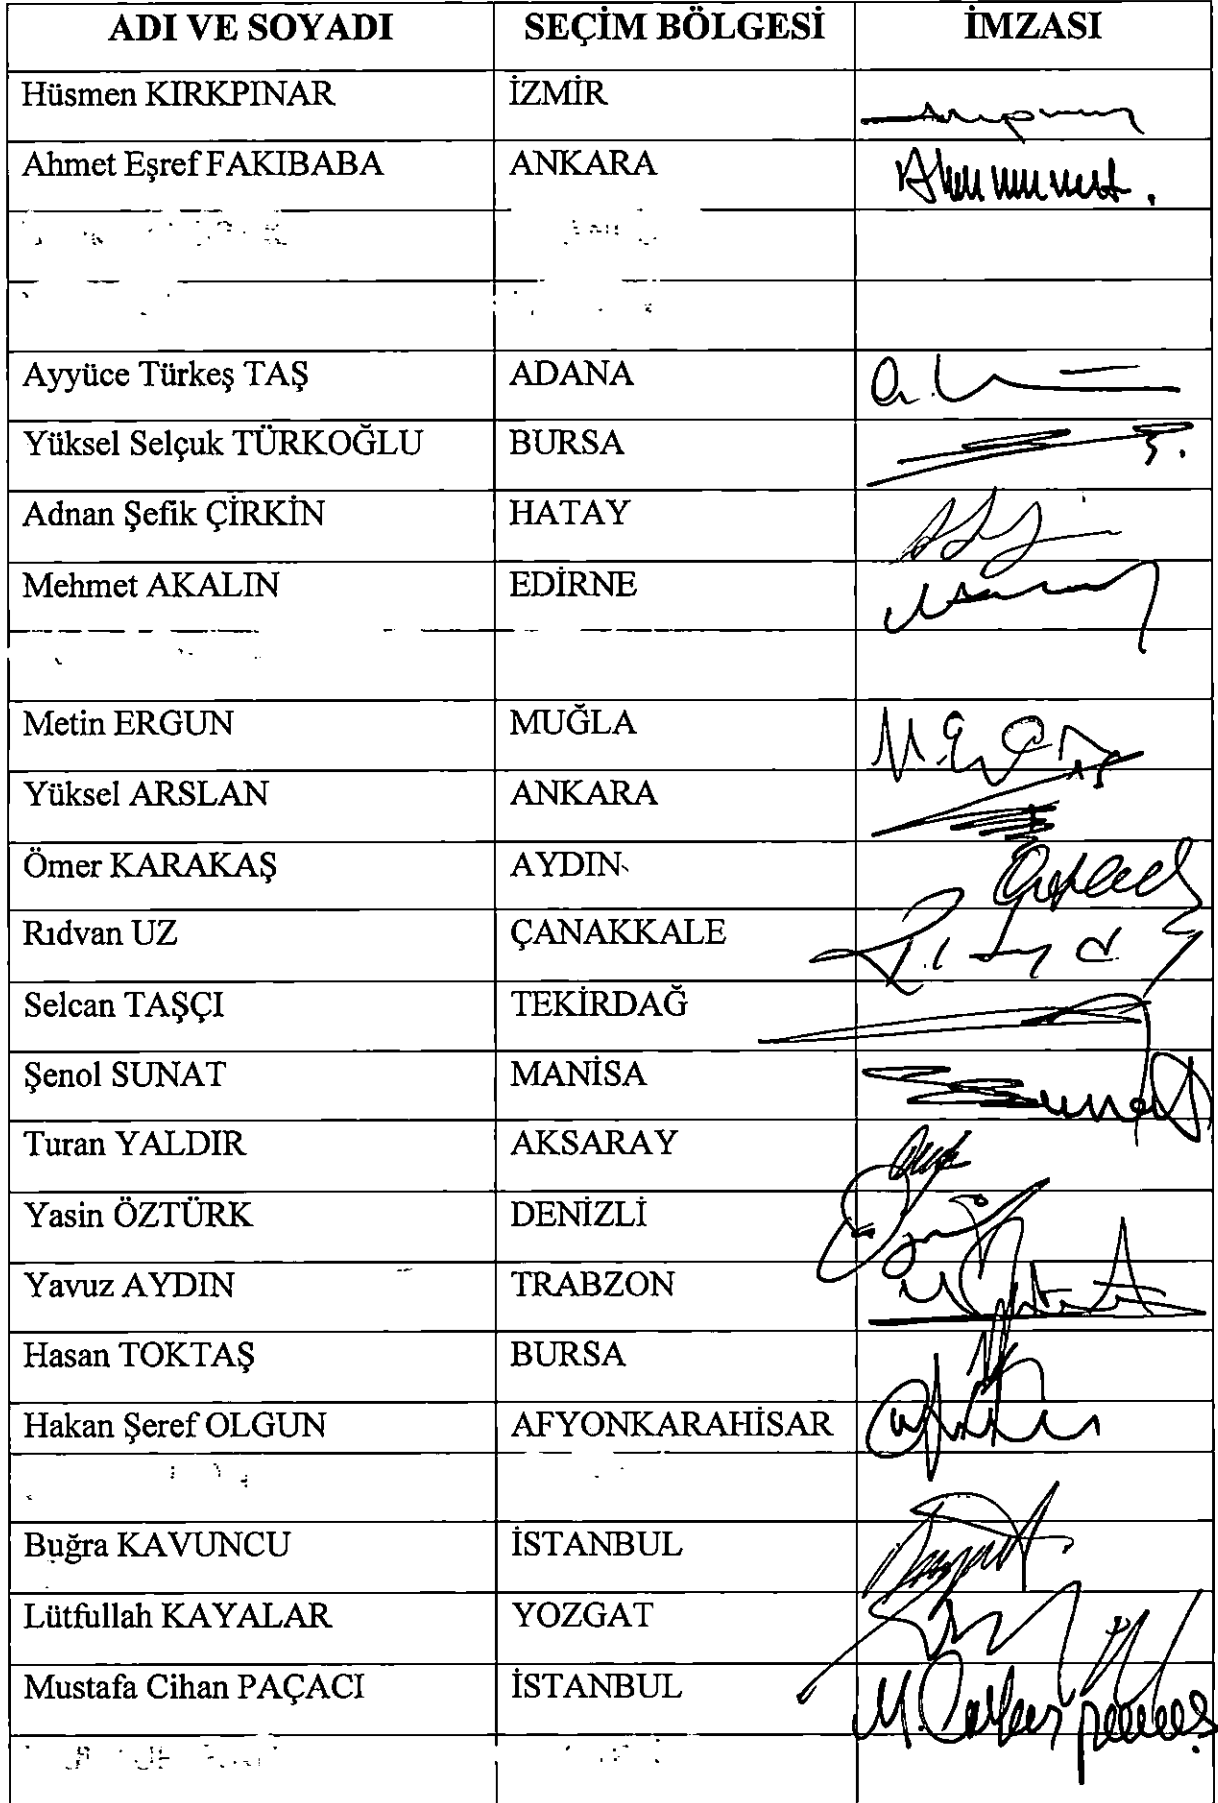 ADI VE SOYADI SEÇİM BÖLGESİ İMZASI
Hüsmen KIRKPINAR İZMİR
Ahmet Eşref FAKIBABA ANKARA
Ayyüce Türkeş TAŞ ADANA
Yüksel Selçuk TÜRKOĞLU BURSA
Adnan Şefik ÇİRKİN HATAY
Mehmet AKALIN EDİRNE
Metin ERGUN MUĞLA
Yüksel ARSLAN ANKARA
Ömer KARAKAŞ AYDIN
Rıdvan UZ ÇANAKKALE
Selcan TAŞÇI TEKİRDAĞ
Şenol SUNAT MANİSA
Turan YALDIR AKSARAY
Yasin ÖZTÜRK DENİZLİ
Yavuz AYDIN TRABZON
Hasan TOKTAŞ BURSA
Hakan Şeref OLGUN AFYONKARAHİSAR
Buğra KAVUNCU İSTANBUL
Lütfullah KAYALAR YOZGAT
Mustafa Cihan PAÇACI İSTANBUL